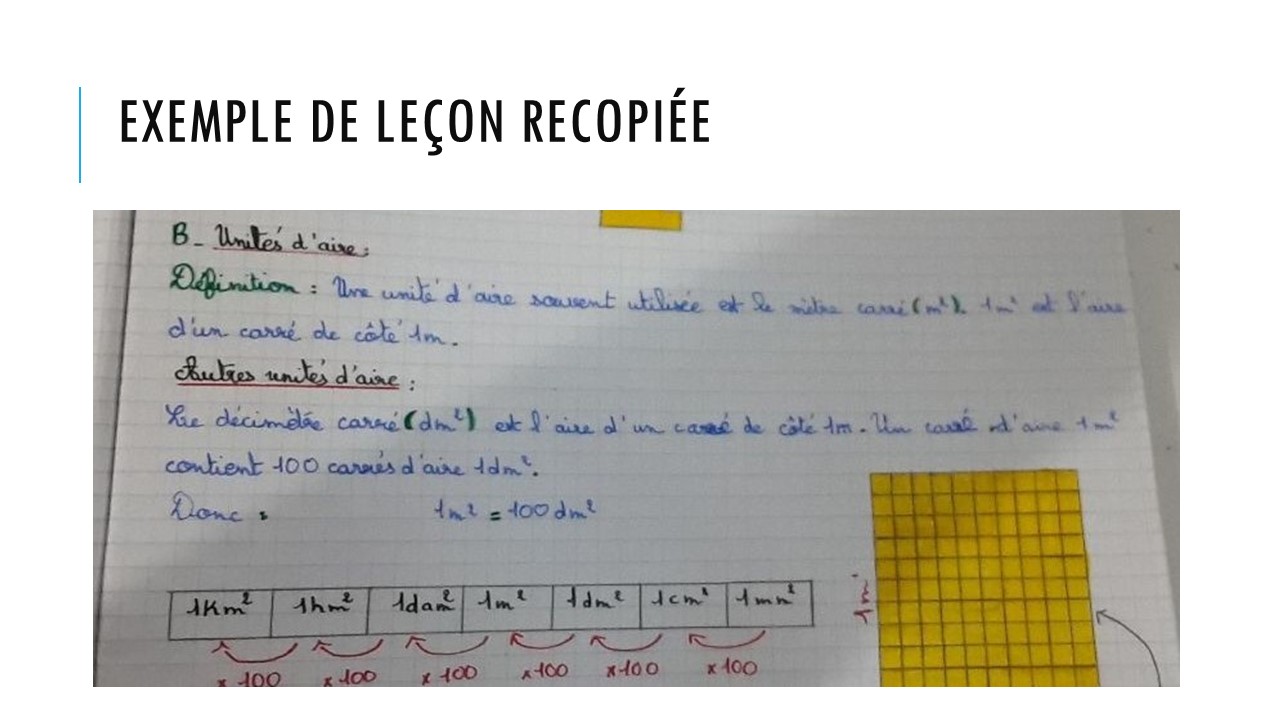 EXEMPLE DE LEÇON RECOPIÉE
B- Unités d'aire :
Définition : Une unité d'aire souvent utilisée est le mètre carré (m²). 1m² est l'aire
d'un carré de côté 1m.
Autres unités d'aire :
Le décimètre carré (dm²) est l'aire d'un carré de côté 1m. Un carré d'aire 1m²
contient 100 carrés d'aire 1dm².
Donc : 1m² = 100 dm²
1Km² 1hm² 1dam² 1m² 1dm² 1cm² 1mm²
x 100 x 100 x 100 x100 x100 x100